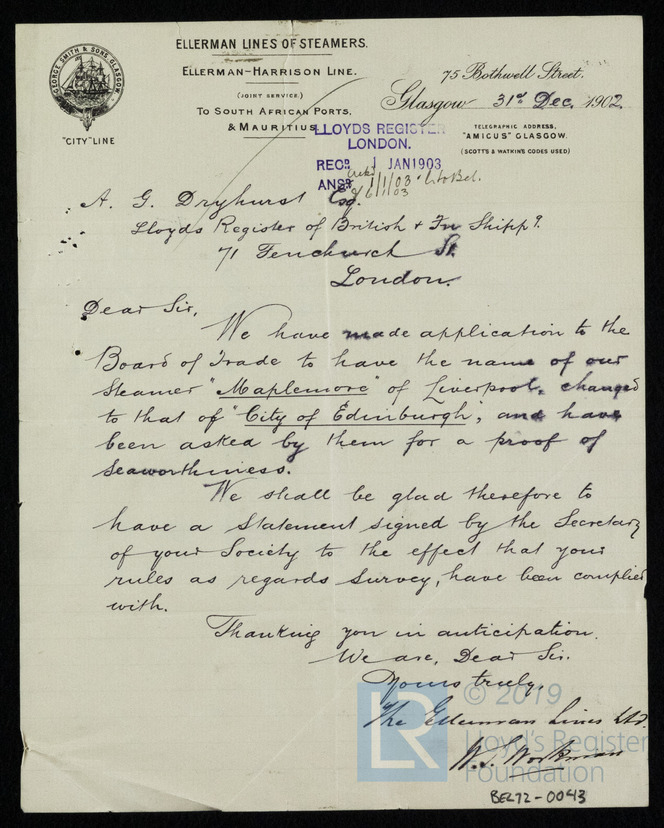 GEORGE SMITH & SONS GLASGOW
"CITY" LINE
ELLERMAN LINES OF STEAMERS.
ELLERMAN-HARRISON LINE.
(JOINT SERVICE.)
TO SOUTH AFRICAN PORTS,
& MAURITIUS.
75 Bothwell Street,
Glasgow 31st Dec. 1902
TELEGRAPHIC ADDRESS,
"AMICUS" GLASGOW.
(SCOTT'S & WATKIN'S CODES USED)
LLOYDS REGISTER
LONDON.
RECD. 1 JAN 1903
ANSD.
1/1/03
6/1/03
A. G. Dryhurst Esq.
Lloyds Register of British & Fn Shippg.
71 Fenchurch St.
London.
Dear Sir,
We have made application to the
Board of Trade to have the name of our
Steamer "Maplemore" of Liverpool, changed
to that of "City of Edinburgh", and have
been asked by them for a proof of
seaworthiness.
We shall be glad therefore to
have a statement signed by the Secretary
of your Society to the effect that your
rules as regards survey, have been complied
with.
Thanking you in anticipation.
We are, Dear Sir.
Yours truly,
The Ellerman Lines Ltd.
W. S. Workman
LR
© 2019
Lloyd's Register
Foundation
BEL72-0043